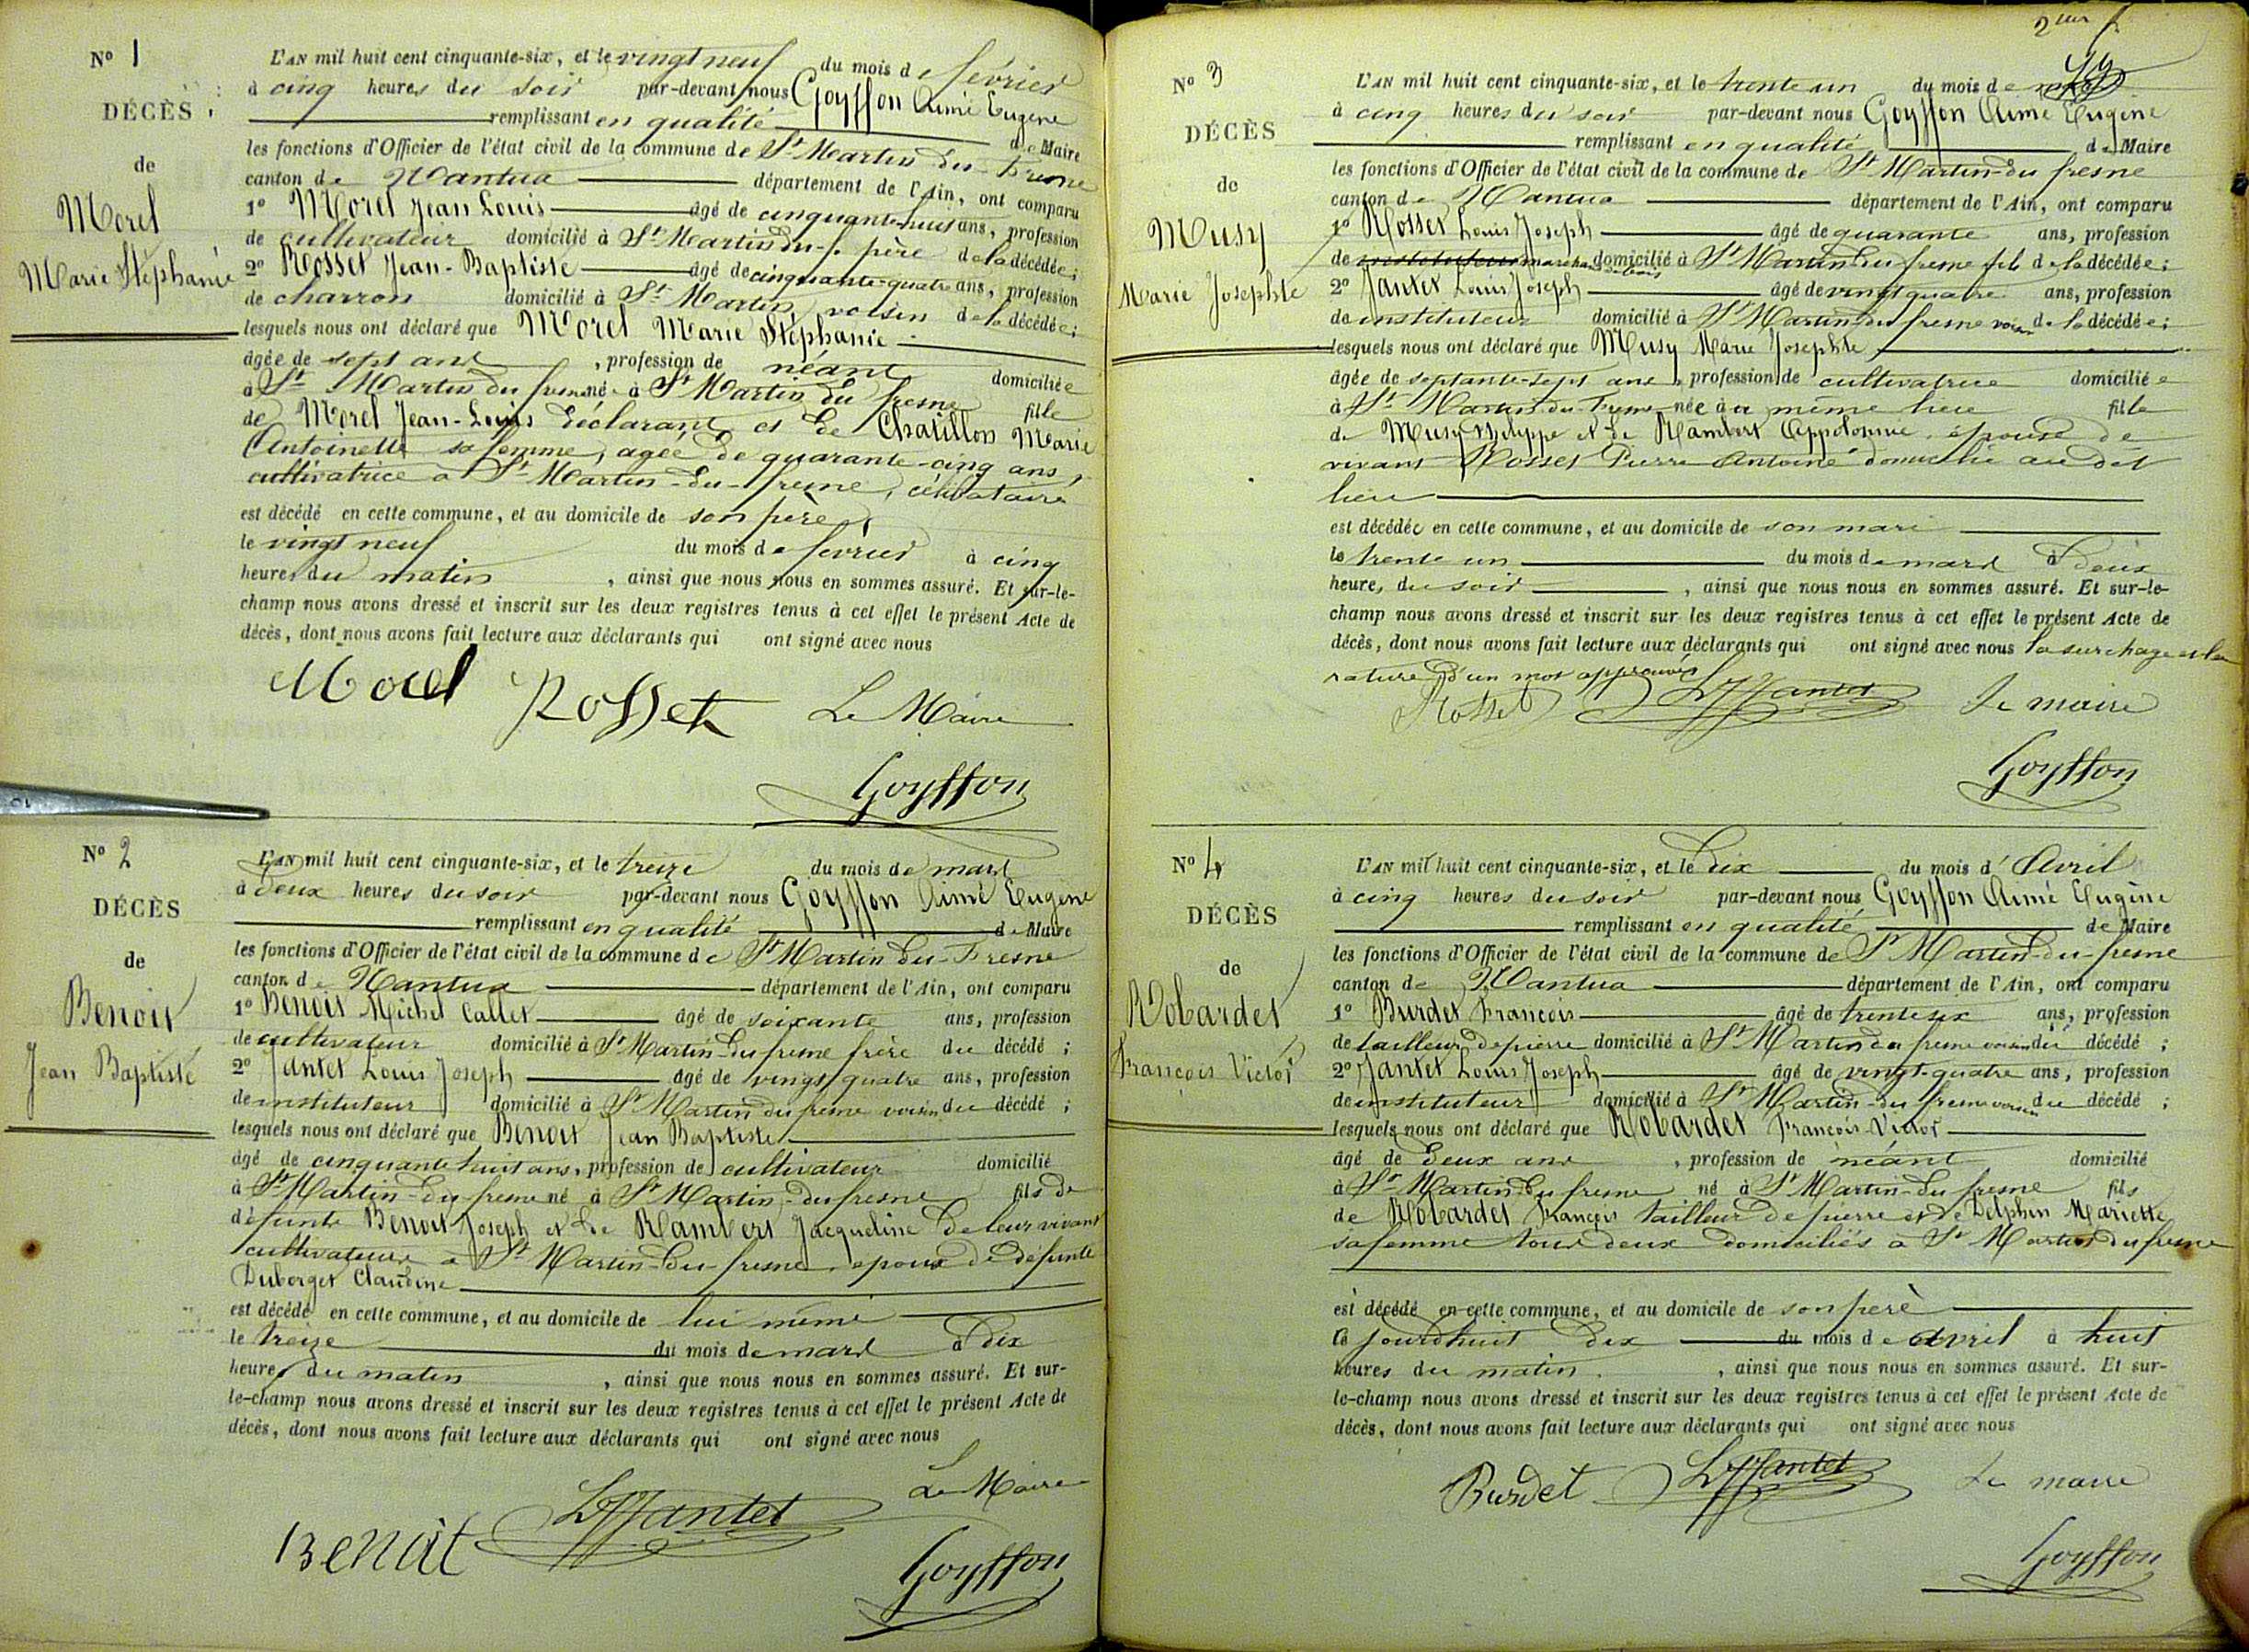 N° 1
DÉCÈS
de
Morel
Marie Stéphanie
L'AN mil huit cent cinquante-six, et le vingt neuf du mois de février
à cinq heures du soir par-devant nous Goyffon Aimé Eugène
remplissant en qualité de Maire
les fonctions d'Officier de l'état civil de la commune de St Martin du-Fresne
canton de Nantua département de l'Ain, ont comparu
1° Morel Jean Louis âgé de cinquante-huit ans, profession
de cultivateur domicilié à St Martin du-f. père de la décédée;
2° Rosset Jean-Baptiste âgé de cinquante-quatre ans, profession
de charron domicilié à St Martin, voisin de la décédée;
lesquels nous ont déclaré que Morel Marie Stéphanie
âgée de sept ans, profession de néant domiciliée
à St Martin du fresne née à St Martin du fresne fille
de Morel Jean-Louis déclarant, et de Chatillon Marie
Antoinette sa femme, agée de quarante-cinq ans,
cultivatrice à St Martin-du-fresne, célibataire
est décédé en cette commune, et au domicile de son père
le vingt neuf du mois de février à cinq
heures du matin, ainsi que nous nous en sommes assuré. Et sur-le-
champ nous avons dressé et inscrit sur les deux registres tenus à cet effet le présent Acte de
décès, dont nous avons fait lecture aux déclarants qui ont signé avec nous
Morel Rosset Le Maire
Goyffon
N° 2
DÉCÈS
de
Benoit
Jean Baptiste
L'AN mil huit cent cinquante-six, et le treize du mois de mars
à deux heures du soir par-devant nous Goyffon Aimé Eugène
remplissant en qualité de Maire
les fonctions d'Officier de l'état civil de la commune de St Martin du-Fresne
canton de Nantua département de l'Ain, ont comparu
1° Benoit Michel Callet âgé de soixante ans, profession
de cultivateur domicilié à St Martin-du fresne frère du décédé;
2° Jantet Louis Joseph âgé de vingt quatre ans, profession
de instituteur domicilié à St Martin du fresne voisin du décédé;
lesquels nous ont déclaré que Benoit Jean Baptiste
âgé de cinquante huit ans, profession de cultivateur domicilié
à St Martin-du fresne né à St Martin-du fresne fils de
défunts Benoit Joseph et de Rambert Jacqueline de leur vivant
cultivateurs à St Martin-du-fresne, epoux de defunte
Duborget Claudine
est décédé en cette commune, et au domicile de lui même
le treize du mois de mars à dix
heures du matin, ainsi que nous nous en sommes assuré. Et sur-
le-champ nous avons dressé et inscrit sur les deux registres tenus à cet effet le présent Acte de
décès, dont nous avons fait lecture aux déclarants qui ont signé avec nous
Le Maire
Benoit LJJantet
Goyffon
N° 3
DÉCÈS
de
Musy
Marie Josephte
L'AN mil huit cent cinquante-six, et le trente un du mois de mars
à cinq heures du soir par-devant nous Goyffon Aimé Eugène
remplissant en qualité de Maire
les fonctions d'Officier de l'état civil de la commune de St Martin-du fresne
canton de Nantua département de l'Ain, ont comparu
1° Rosset Louis Joseph âgé de quarante ans, profession
de instituteur marchand de bois domicilié à St Martin du fresne fils de la décédée;
2° Jantet Louis Joseph âgé de vingt quatre ans, profession
de instituteur domicilié à St Martin du fresne voisin de la décédée;
lesquels nous ont déclaré que Musy Marie Josephte
âgée de septante-sept ans, profession de cultivatrice domiciliée
à St Martin-du-fresne née à u même lieu fille
de Musy Philippe et de Rambert Appolonnie, épouse de
vivant Rosset Pierre Antoine domicilié au dit
lieu
est décédée en cette commune, et au domicile de son mari
le trente un du mois de mars à deux
heure, du soir, ainsi que nous nous en sommes assuré. Et sur-le-
champ nous avons dressé et inscrit sur les deux registres tenus à cet effet le présent Acte de
décès, dont nous avons fait lecture aux déclarants qui ont signé avec nous la surchage et la
rature d'un mot approuvés
Rosset LJJantet Le maire
Goyffon
N° 4
DÉCÈS
de
Robardet
François Victor
L'AN mil huit cent cinquante-six, et le dix du mois d' Avril
à cinq heures du soir par-devant nous Goyffon Aimé Eugène
remplissant en qualité de Maire
les fonctions d'Officier de l'état civil de la commune de St Martin-du-fresne
canton de Nantua département de l'Ain, ont comparu
1° Burdet François âgé de trente six ans, profession
de tailleur de pierre domicilié à St Martin du fresne voisin du décédé;
2° Jantet Louis Joseph âgé de vingt-quatre ans, profession
de instituteur domicilié à St Martin-du fresne voisin du décédé;
lesquels nous ont déclaré que Robardet François Victor
âgé de deux ans, profession de néant domicilié
à St Martin-du fresne né à St Martin-du fresne fils
de Robardet François tailleur de pierre et de Delphin Mariette
sa femme tous deux domiciliés à St Martin du fresne
est décédé en cette commune, et au domicile de son père
le jourdhuit dix du mois de avril à huit
heures du matin, ainsi que nous nous en sommes assuré. Et sur-
le-champ nous avons dressé et inscrit sur les deux registres tenus à cet effet le présent Acte de
décès, dont nous avons fait lecture aux déclarants qui ont signé avec nous
Burdet LJJantet Le maire
Goyffon